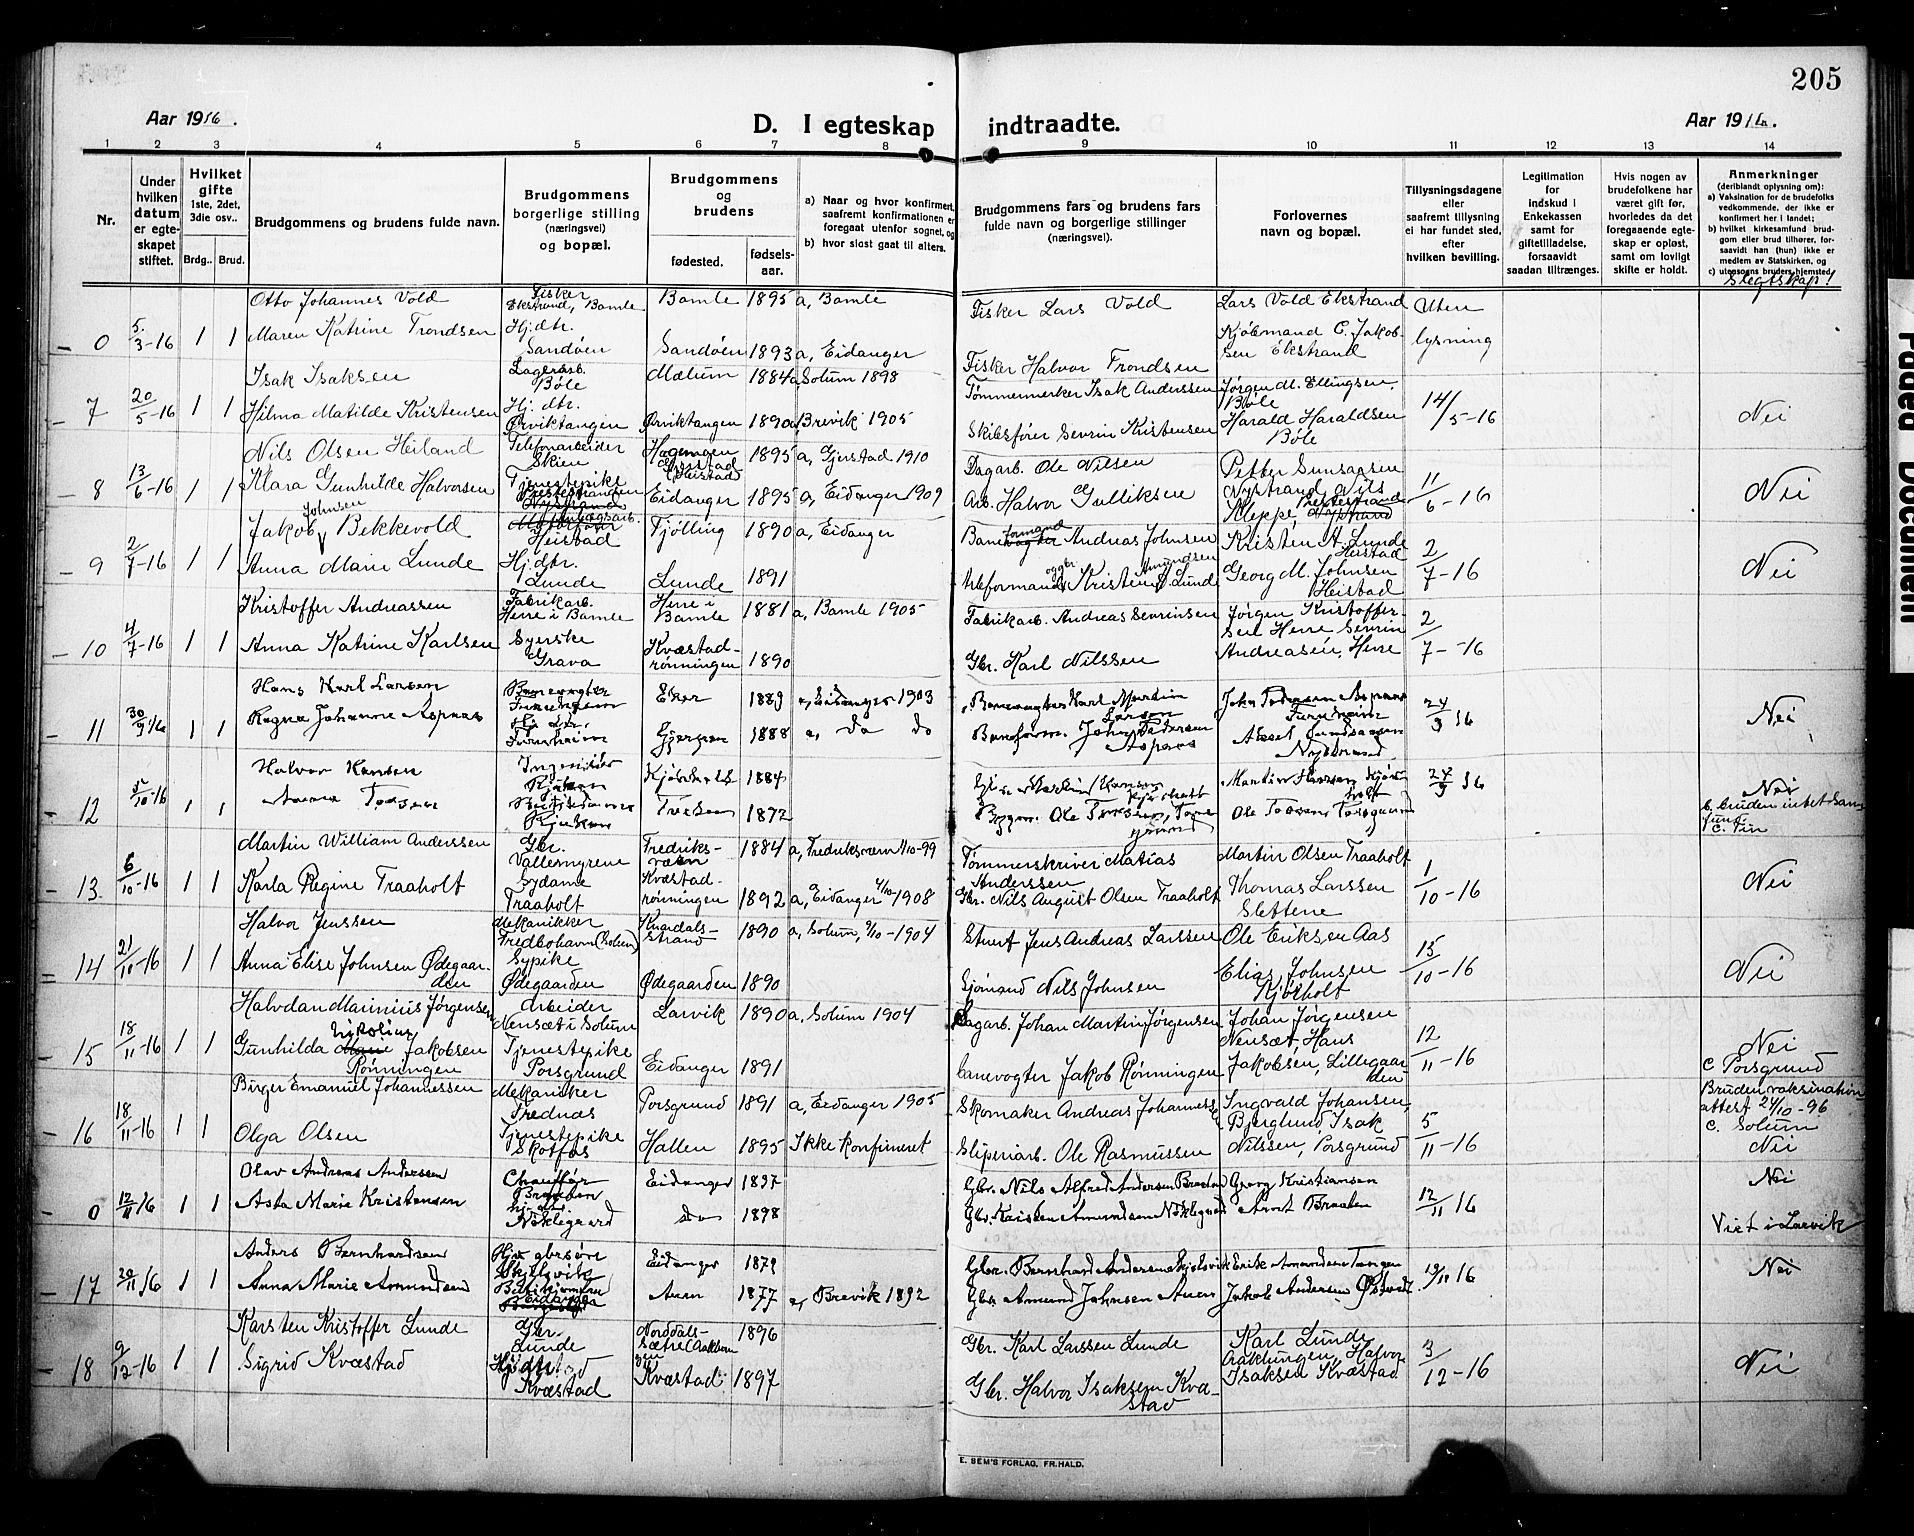 205
Aar 1916.
D. I egteskap indtraadte.
Aar 1916.
1 2 3 4 5 6 7 8 9 10 11 12 13 14
Nr.
Under hvilken datum er egteskapet stiftet.
Hvilket gifte 1ste, 2det, 3die osv..
Brdg.. Brud.
Brudgommens og brudens fulde navn.
Brudgommens borgerlige stilling (næringsvei) og bopæl.
Brudgommens og brudens
fødested.
fødselsaar.
a) Naar og hvor konfirmert, saafremt konfirmationen er foregaat utenfor sognet, og
b) hvor sidst gaat til alters.
Brudgommens fars og brudens fars fulde navn og borgerlige stillinger (næringsvei).
Forlovernes navn og bopæl.
Tillysningsdagene eller saafremt tillysning ei har fundet sted, efter hvilken bevilling.
Legitimation for indskud i Enkekassen samt for giftetilladelse, forsaavidt saadan tiltrænges.
Hvis nogen av brudefolkene har været gift før, hvorledes da det foregaaende egteskap er opløst, samt om lovligt skifte er holdt.
Anmerkninger (deriblandt oplysning om):
a) Vaksination for de brudefolks vedkommende, der ikke er konfirmert her i landet;
b) hvilket kirkesamfund brudgom eller brud tilhører, forsaavidt han (hun) ikke er medlem av Statskirken, og
c) utensogns bruders hjemsted.
Slegtskap!
Otto Johannes Vold Fisker Ekstrand, Bamle Bamle 1895 a, Bamle Fisker Lars Vold Lars Vold Ekstrand Uten
0 5/3-16 1 1 Maren Katrine Trondsen Hj. dtr. Sandøen Sandøen 1893 a, Eidanger Fisker Halvor Trondsen Kjøbmand C. Jakobsen Ekstrand lysning
Isak Isaksen Lagerarb. Bøle Mælum 1884 a, Solum 1898 Tømmermerker Isak Anderssen Jørgen M. Ellingsen, Bøle
7 20/5-16 1 1 Hilma Matilde Kristensen Hj. dtr. Ørviktangen Ørviktangen 1890 a, Brevik 1905 Skibsfører Sevrin Kristensen Harald Haraldsen Bøle 14/5-16 Nei
Nils Olsen Heiland Telefonarbeider Skien 1895 a, Gjerstad 1910 Dagarb. Ole Nilsen Petter
8 13/6-16 1 1 Klara Gunhilde Halvorsen Tjenestepike Eidanger 1895 a, Eidanger 1909 Arb. Halvor Gulliksen Nystrand, Nils Kleppe 11/6-16 Nei
Jakob Johnsen Bekkevold Heistad Tjølling 1890 a, Eidanger Baneformand Andreas Johnsen Kristen A. Lunde Heistad
9 2/7-16 1 1 Anna Marie Lunde Hj. dtr. Lunde Lunde 1891 Kristen Amundsen Lunde Georg M. Johnsen Heistad 2/7-16 Nei
Kristoffer Andreassen Fabrikarb. Herre i Bamle Herre i Bamle 1881 a, Bamle 1905 Fabrikarb. Andreas Sevrinsen Jørgen Kristoffersen Herre Sevrin
10 4/7-16 1 1 Anna Katrine Karlsen Syerske Grava Kvæstadrønningen 1890 Gbr. Karl Nilssen Andreasen, Herre 2/7-16
Hans Karl Larsen Banevogter Eker 1889 a, Eidanger 1903 Banevogter Karl Martin Larsen
11 30/9-16 1 1 Ragna Johanne Aspnas Hj. dtr. Gjerpen 1888 a, do do Baneform. John Pedersen Aspnas 24/9 16 Nei
Halvor Hansen Ingeniør Rjukan 1884
12 5/10-16 1 1 Rjukan 1872 24/9 16 Nei
Martin William Anderssen Gbr. Vallermyrene Fredriksværn 1884 a, Fredriksværn 1/10-99 Tømmerskriver Matias Anderssen Martin Olsen Traaholt
13 6/10-16 1 1 Karla Regine Traaholt Sydame Traaholt Kvæstadrønningen 1892 a, Eidanger 4/10-1908 Gbr. Nils August Olsen Traaholt Thomas Larssen Slettene 1/10-16 Nei
Halvor Jenssen Mekanikker Fredbohavn (Solum) Knardalsstrand 1890 a, Solum, 9/10-1904 Stuert Jens Andreas Larssen Ole Eriksen Aas
14 21/10-16 1 1 Anna Elise Johnsen Ødegaarden Sypike Ødegaarden Ødegaarden 1890 Sjømand Nils Johnsen Elias Johnsen Kjørholt 15/10-16 Nei
Halvdan Marinius Jørgensen Arbeider Nensæt i Solum Larvik 1890 a, Solum 1904 Dagarb. Johan Martin Jørgensen Johan Jørgensen Nensæt, Hans
15 18/11-16 1 1 Gunhilda Nikoline Jakobsen Rønningen Tjenestepike Porsgrund Eidanger 1891 Banevogter Jakob Rønningen Jakobsen, Lillegaarden 12/11-16 Nei c Porsgrund
Birger Emanuel Johannessen Mekaniker Frednæs Porsgrund 1891 a, Eidanger 1905 Skomaker Andreas Johannessen Ingvald Johansen, Bjerglund, Isak Bruden vaksinationattest 24/10-96 c. Solum
16 18/11-16 1 1 Olga Olsen Tjenestepike Skotfos Hallen 1895 Ikke konfirmeret Sliperiarb. Ole Rasmussen Nilssen, Porsgrund 5/11-16 Nei
Olav Andreas Anderssen Chauffør Braaten Eidanger 1897 Gbr. Nils Alfred Andersen Braaten Georg Kristiansen Nei
0 12/11 16 1 1 Asta Marie Kristensen Hj. dtr. Nøklegaard do 1898 Gbr. Kristen Amundsen Nøklegaard Arnt Braaten 12/11 16 Viet i Larvik
Anders Bernhardsen Skjelsvik Eidanger 1879 Gbr. Bernhard Andersen Skjelsvik Erik Amundsen Tangen
17 20/11 16 1 1 Anna Marie Amundsen Auen 1877 a, Brevik 1892 Gbr. Amund Johnsen Auen Jakob Andersen 19/11 16 Nei
Karsten Kristoffer Lunde Gbr. Lunde 1896 Gbr. Karl Larssen Lunde Karl Lunde
18 9/12-16 1 1 Sigrid Kvæstad Hj. dtr. Kvæstad Kvæstad 1897 Gbr. Halvor Isaksen Kvæstad Aaklungen, Halvor Isaksen Kvæstad 3/12-16 Nei
E. SEM'S FORLAG, FR.HALD.
Faded Document